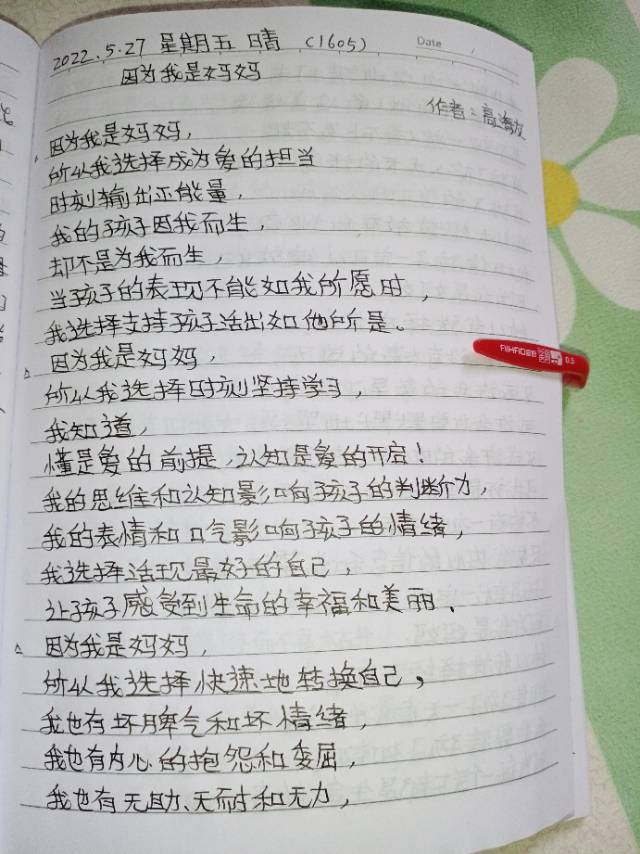 2022.5.27 星期五 晴 (1605)
Date
因为我是妈妈
作者:高海友
因为我是妈妈,
所以我选择成为爱的担当
时刻输出正能量,
我的孩子因我而生,
却不是为我而生,
当孩子的表现不能如我所愿时,
我选择支持孩子活出如他所是。
因为我是妈妈,
所以我选择时刻坚持学习,
我知道,
懂是爱的前提,认知是爱的开启!
我的思维和认知影响孩子的判断力,
我的表情和口气影响孩子的情绪,
我选择活现最好的自己,
让孩子感受到生命的幸福和美丽、
因为我是妈妈,
所以我选择快速地转换自己,
我也有坏脾气和坏情绪,
我也有内心的抱怨和委屈,
我也有无助、无耐和无力,
0.5